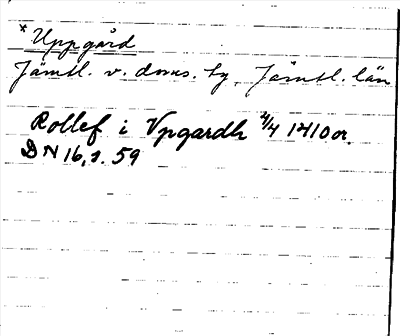 * Uppgård
Jämtl. v. doms. tg, Jämtl. län
Rollef i Vpgardh 4/4 1410 or.
DN 16, s. 59